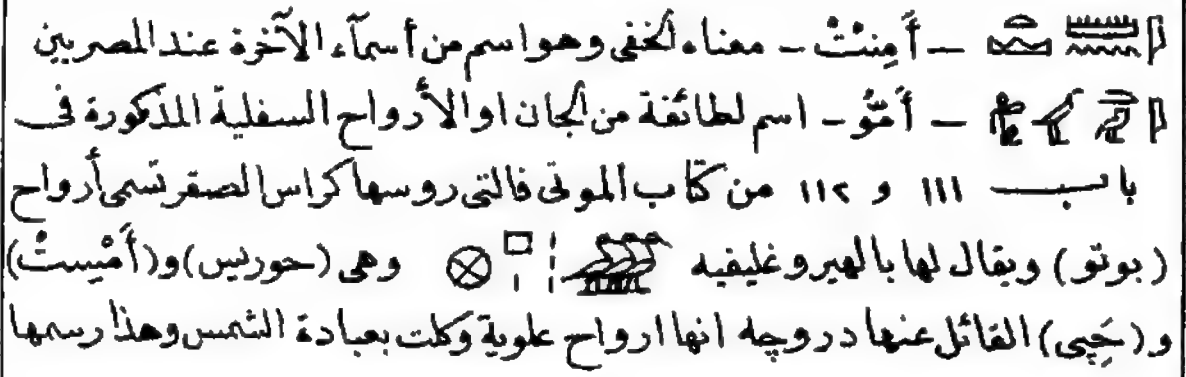 — أَمِنتْ — معناه الخفى وهو اسم من أسمآء الآخرة عند المصريين
— أَمَّوُ — اسم لطائفة من الجان او الأرواح السفلية المذكورة فى
باب ١١١ و ١١٢ من كتاب الموتى فالتى روسها كراس الصقر تسمى أرواح
(بوتو) ويقال لها بالهيروغليفيه وهى (حوريس) و(أَمْيِستْ)
و(حَپِى) القائل عنها دروجه انها ارواح علوية وكلت بعبادة الشمس وهذا رسمها